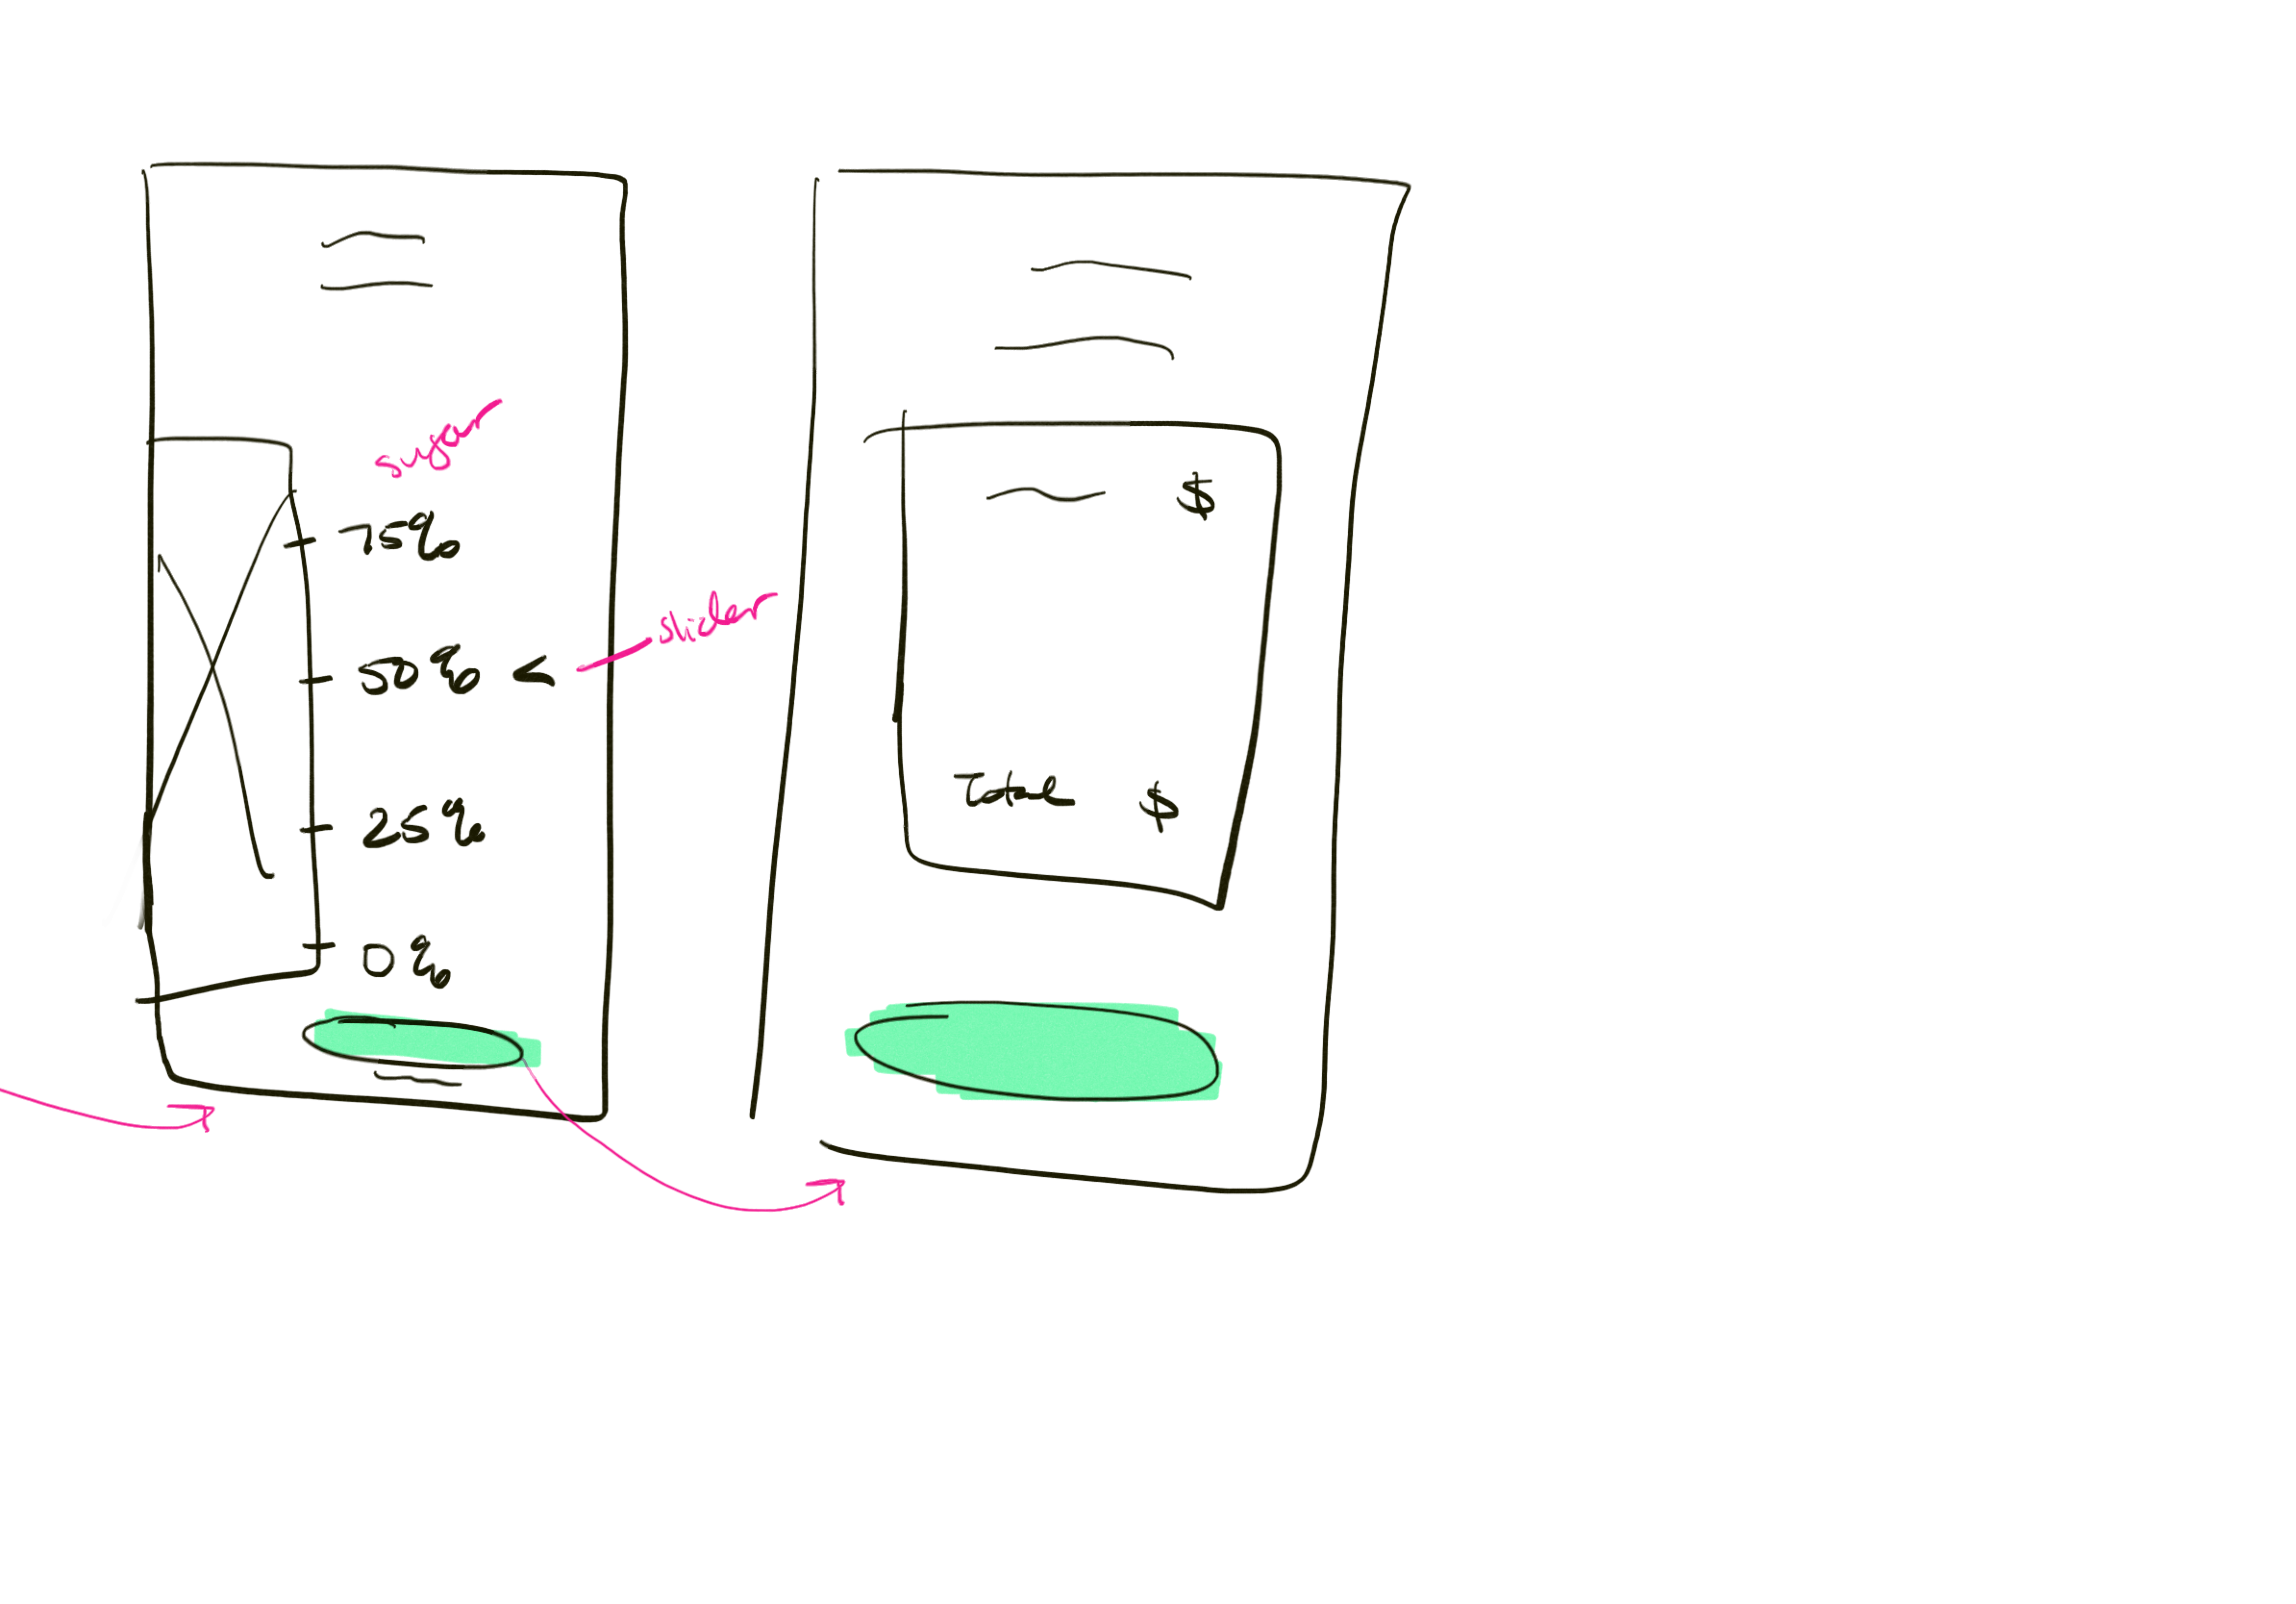 sugar
75%
50% <
slider
25%
0%
$
Total $